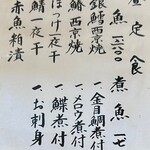 定食
煮魚 一七
一、金目鯛煮付
一、メロウ煮付
一、鰈煮付
一、お刺身
魚 一三八〇
銀鱈西京焼
鰆西京焼
ほっけ一夜干
鯖一夜干
赤魚粕漬